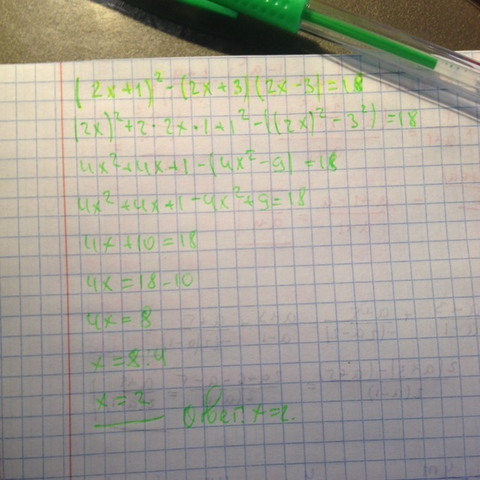 (2x+1)² - (2x+3)(2x-3) = 18
(2x)² + 2·2x·1 + 1² - ((2x)² - 3²) = 18
4x² + 4x + 1 - (4x² - 9) = 18
4x² + 4x + 1 - 4x² + 9 = 18
4x + 10 = 18
4x = 18 - 10
4x = 8
x = 8:4
x = 2
Ответ: x=2.